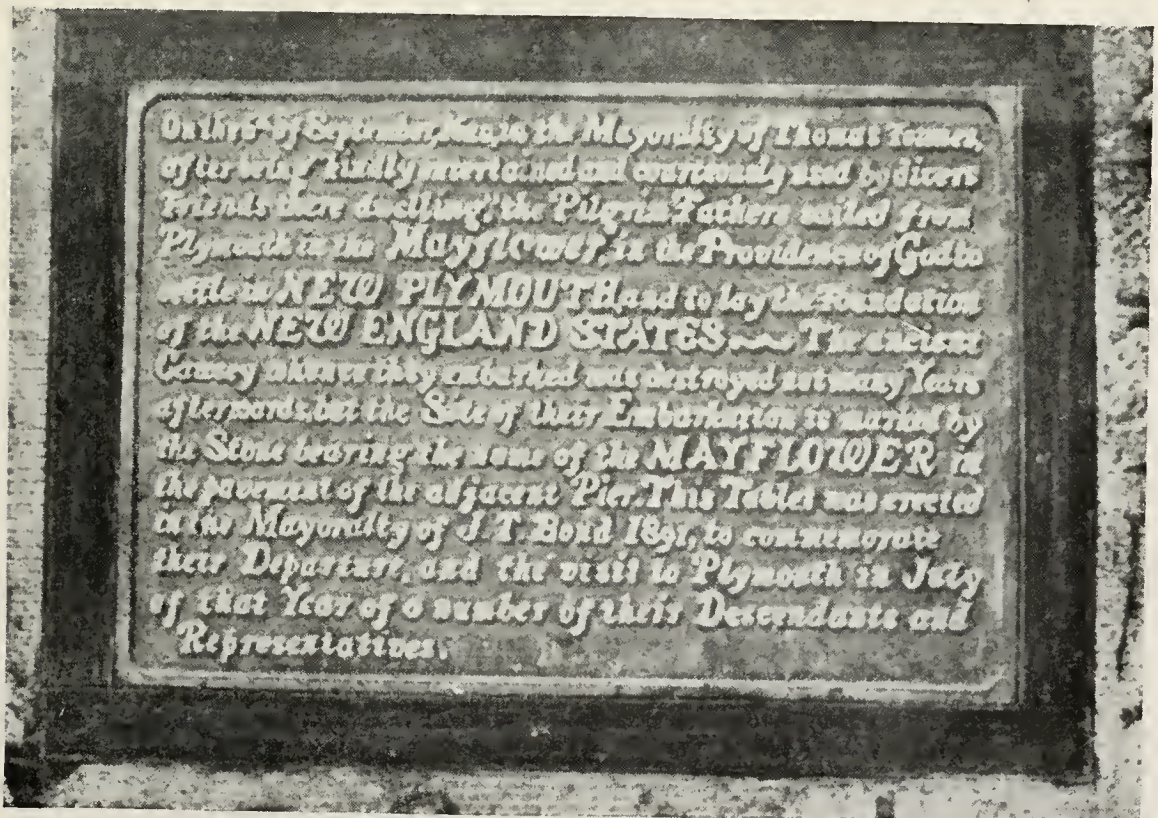 On the 6th of September, 1620, in the Mayoralty of Thomas Townes,
after being "kindly entertained and courteously used by divers
Friends there dwelling," the Pilgrim Fathers sailed from
Plymouth in the Mayflower, in the Providence of God to
settle in NEW PLYMOUTH and to lay the Foundation
of the NEW ENGLAND STATES The ancient
Cawsey whence they embarked was destroyed not many Years
afterwards, but the Site of their Embarkation is marked by
the Stone bearing the name of the MAYFLOWER in
the pavement of the adjacent Pier. This Tablet was erected
in the Mayoralty of J. T. Bond 1891, to commemorate
their Departure, and the visit to Plymouth in July
of that Year of a number of their Descendants and
Representatives.